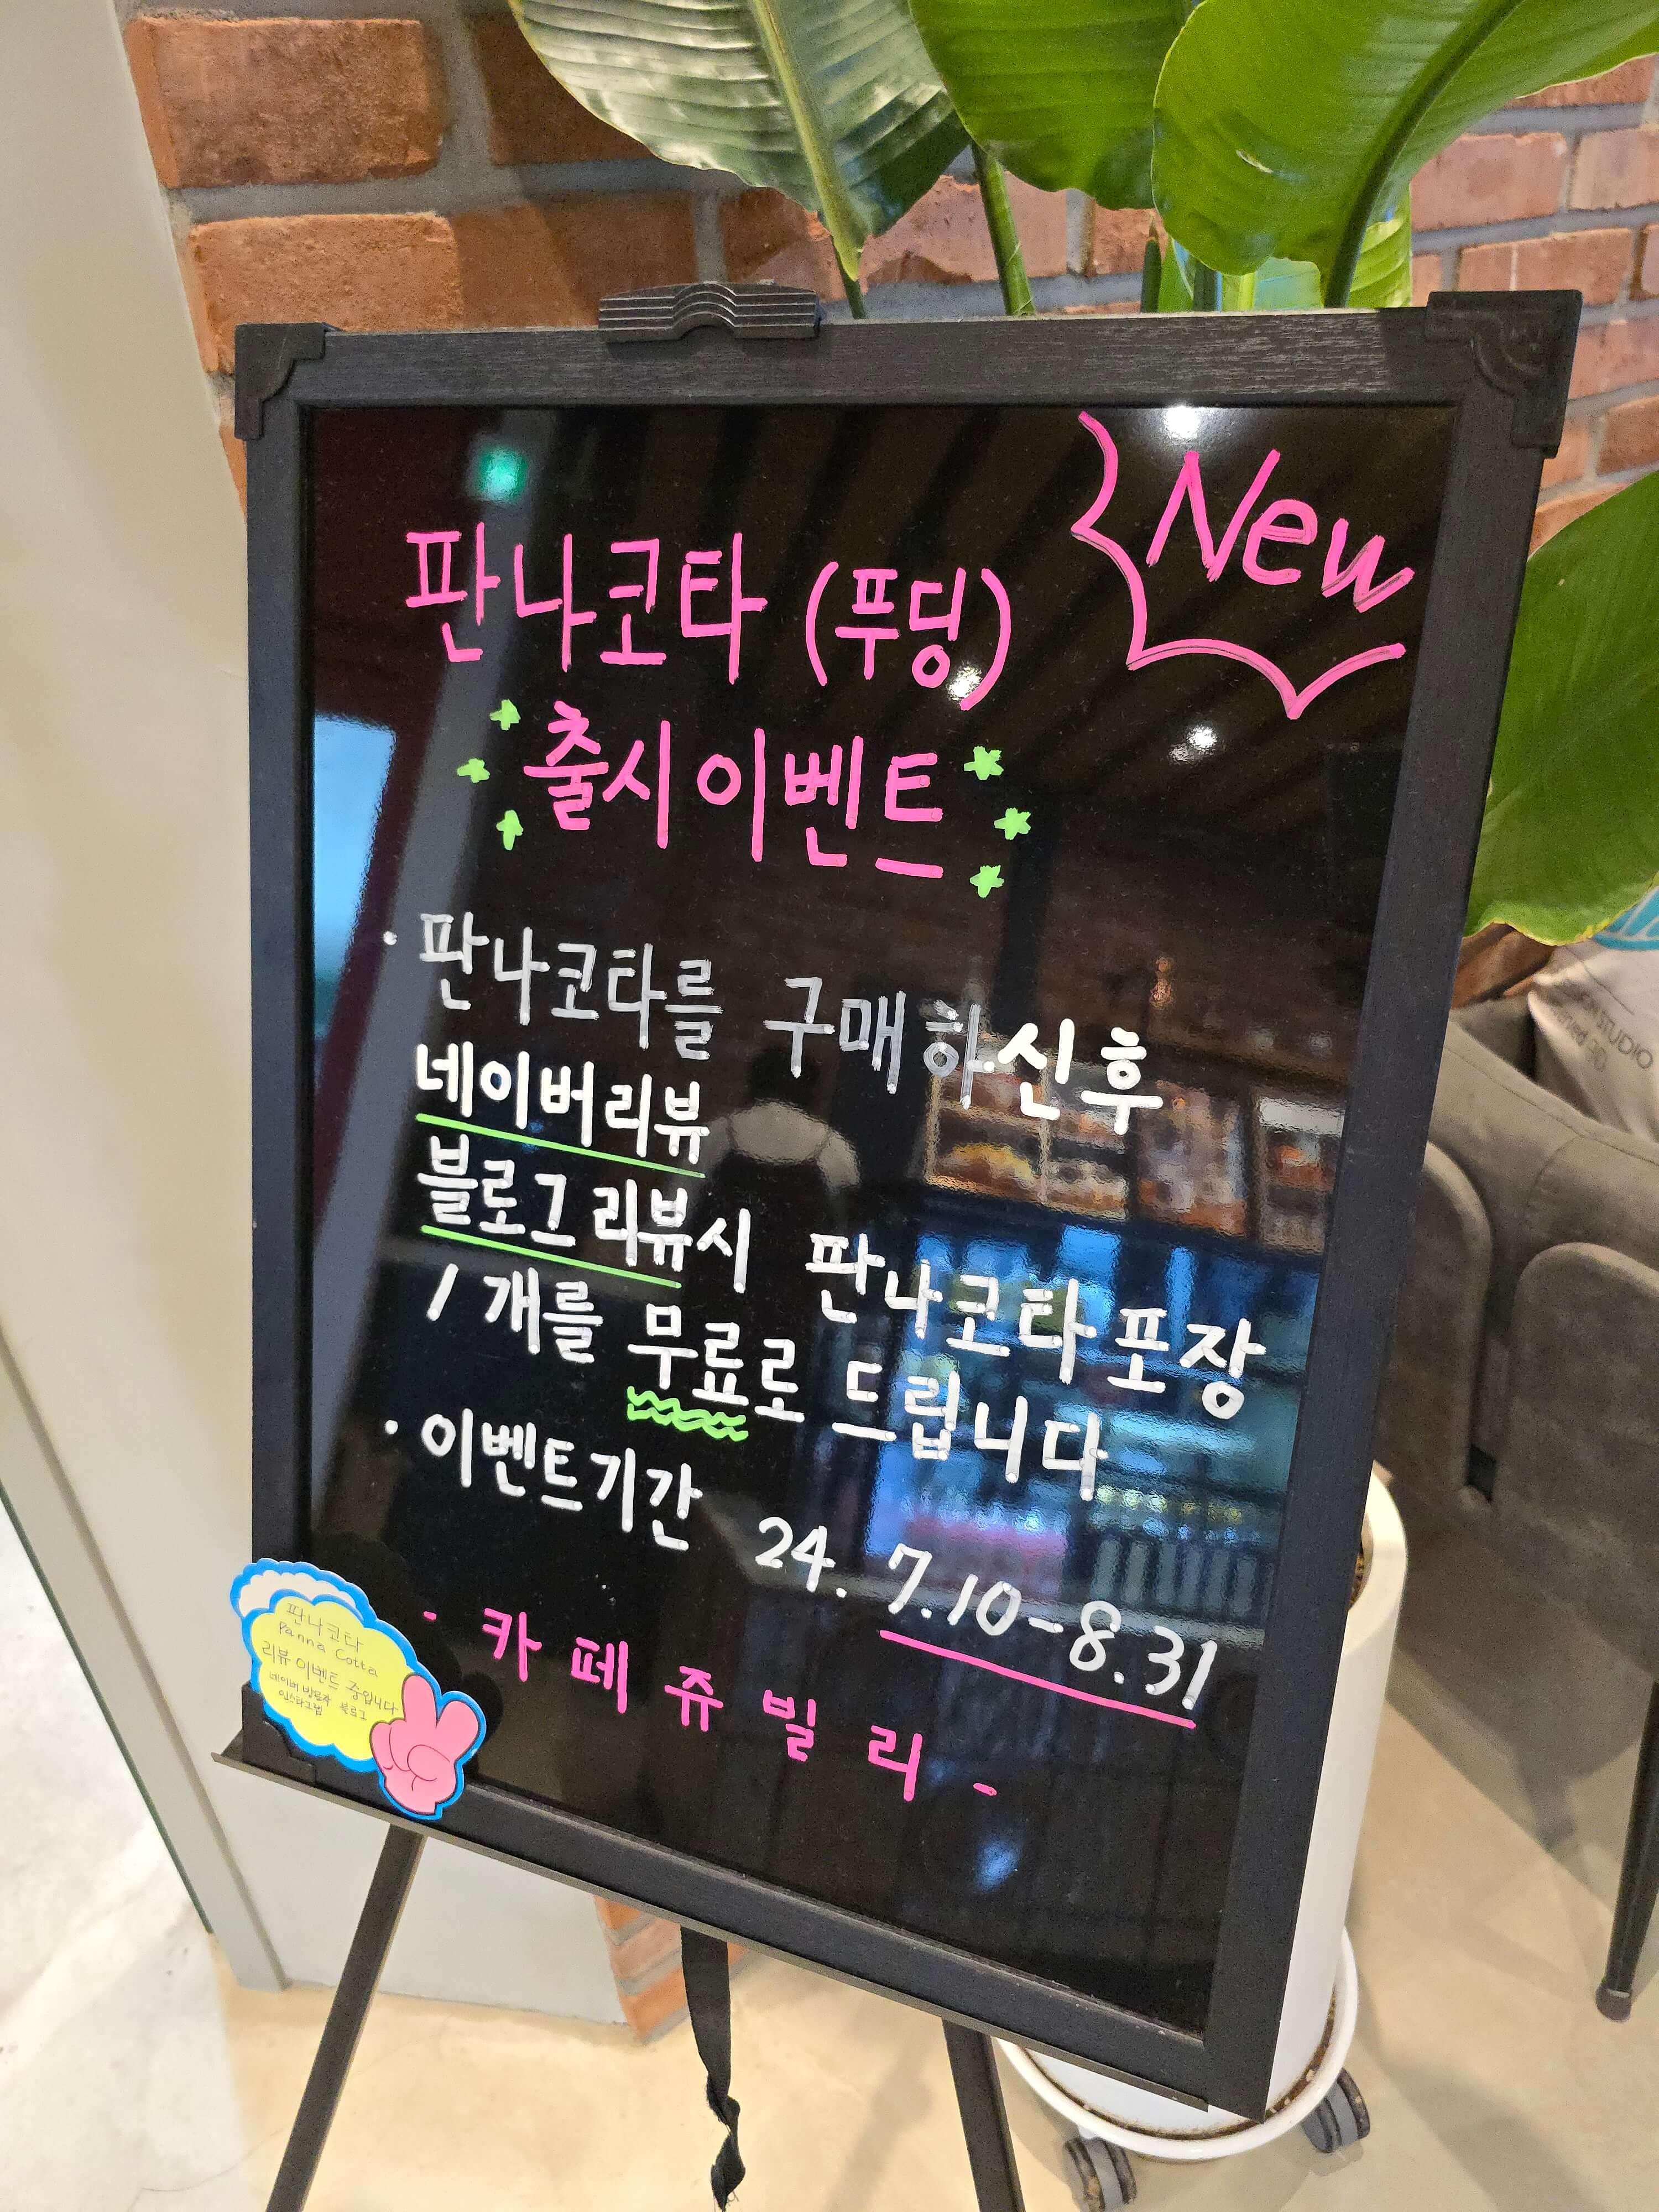 New
판나코타 (푸딩)
출시이벤트
· 판나코타를 구매하신후
네이버리뷰
블로그 리뷰시 판나코타포장
1개를 무료로 드립니다
· 이벤트기간 24. 7.10-8.31
- 카페쥬빌리 -
판나코타
Panna Cotta
리뷰 이벤트 중입니다
네이버 방문자 블로그
인스타그램
STUDIO